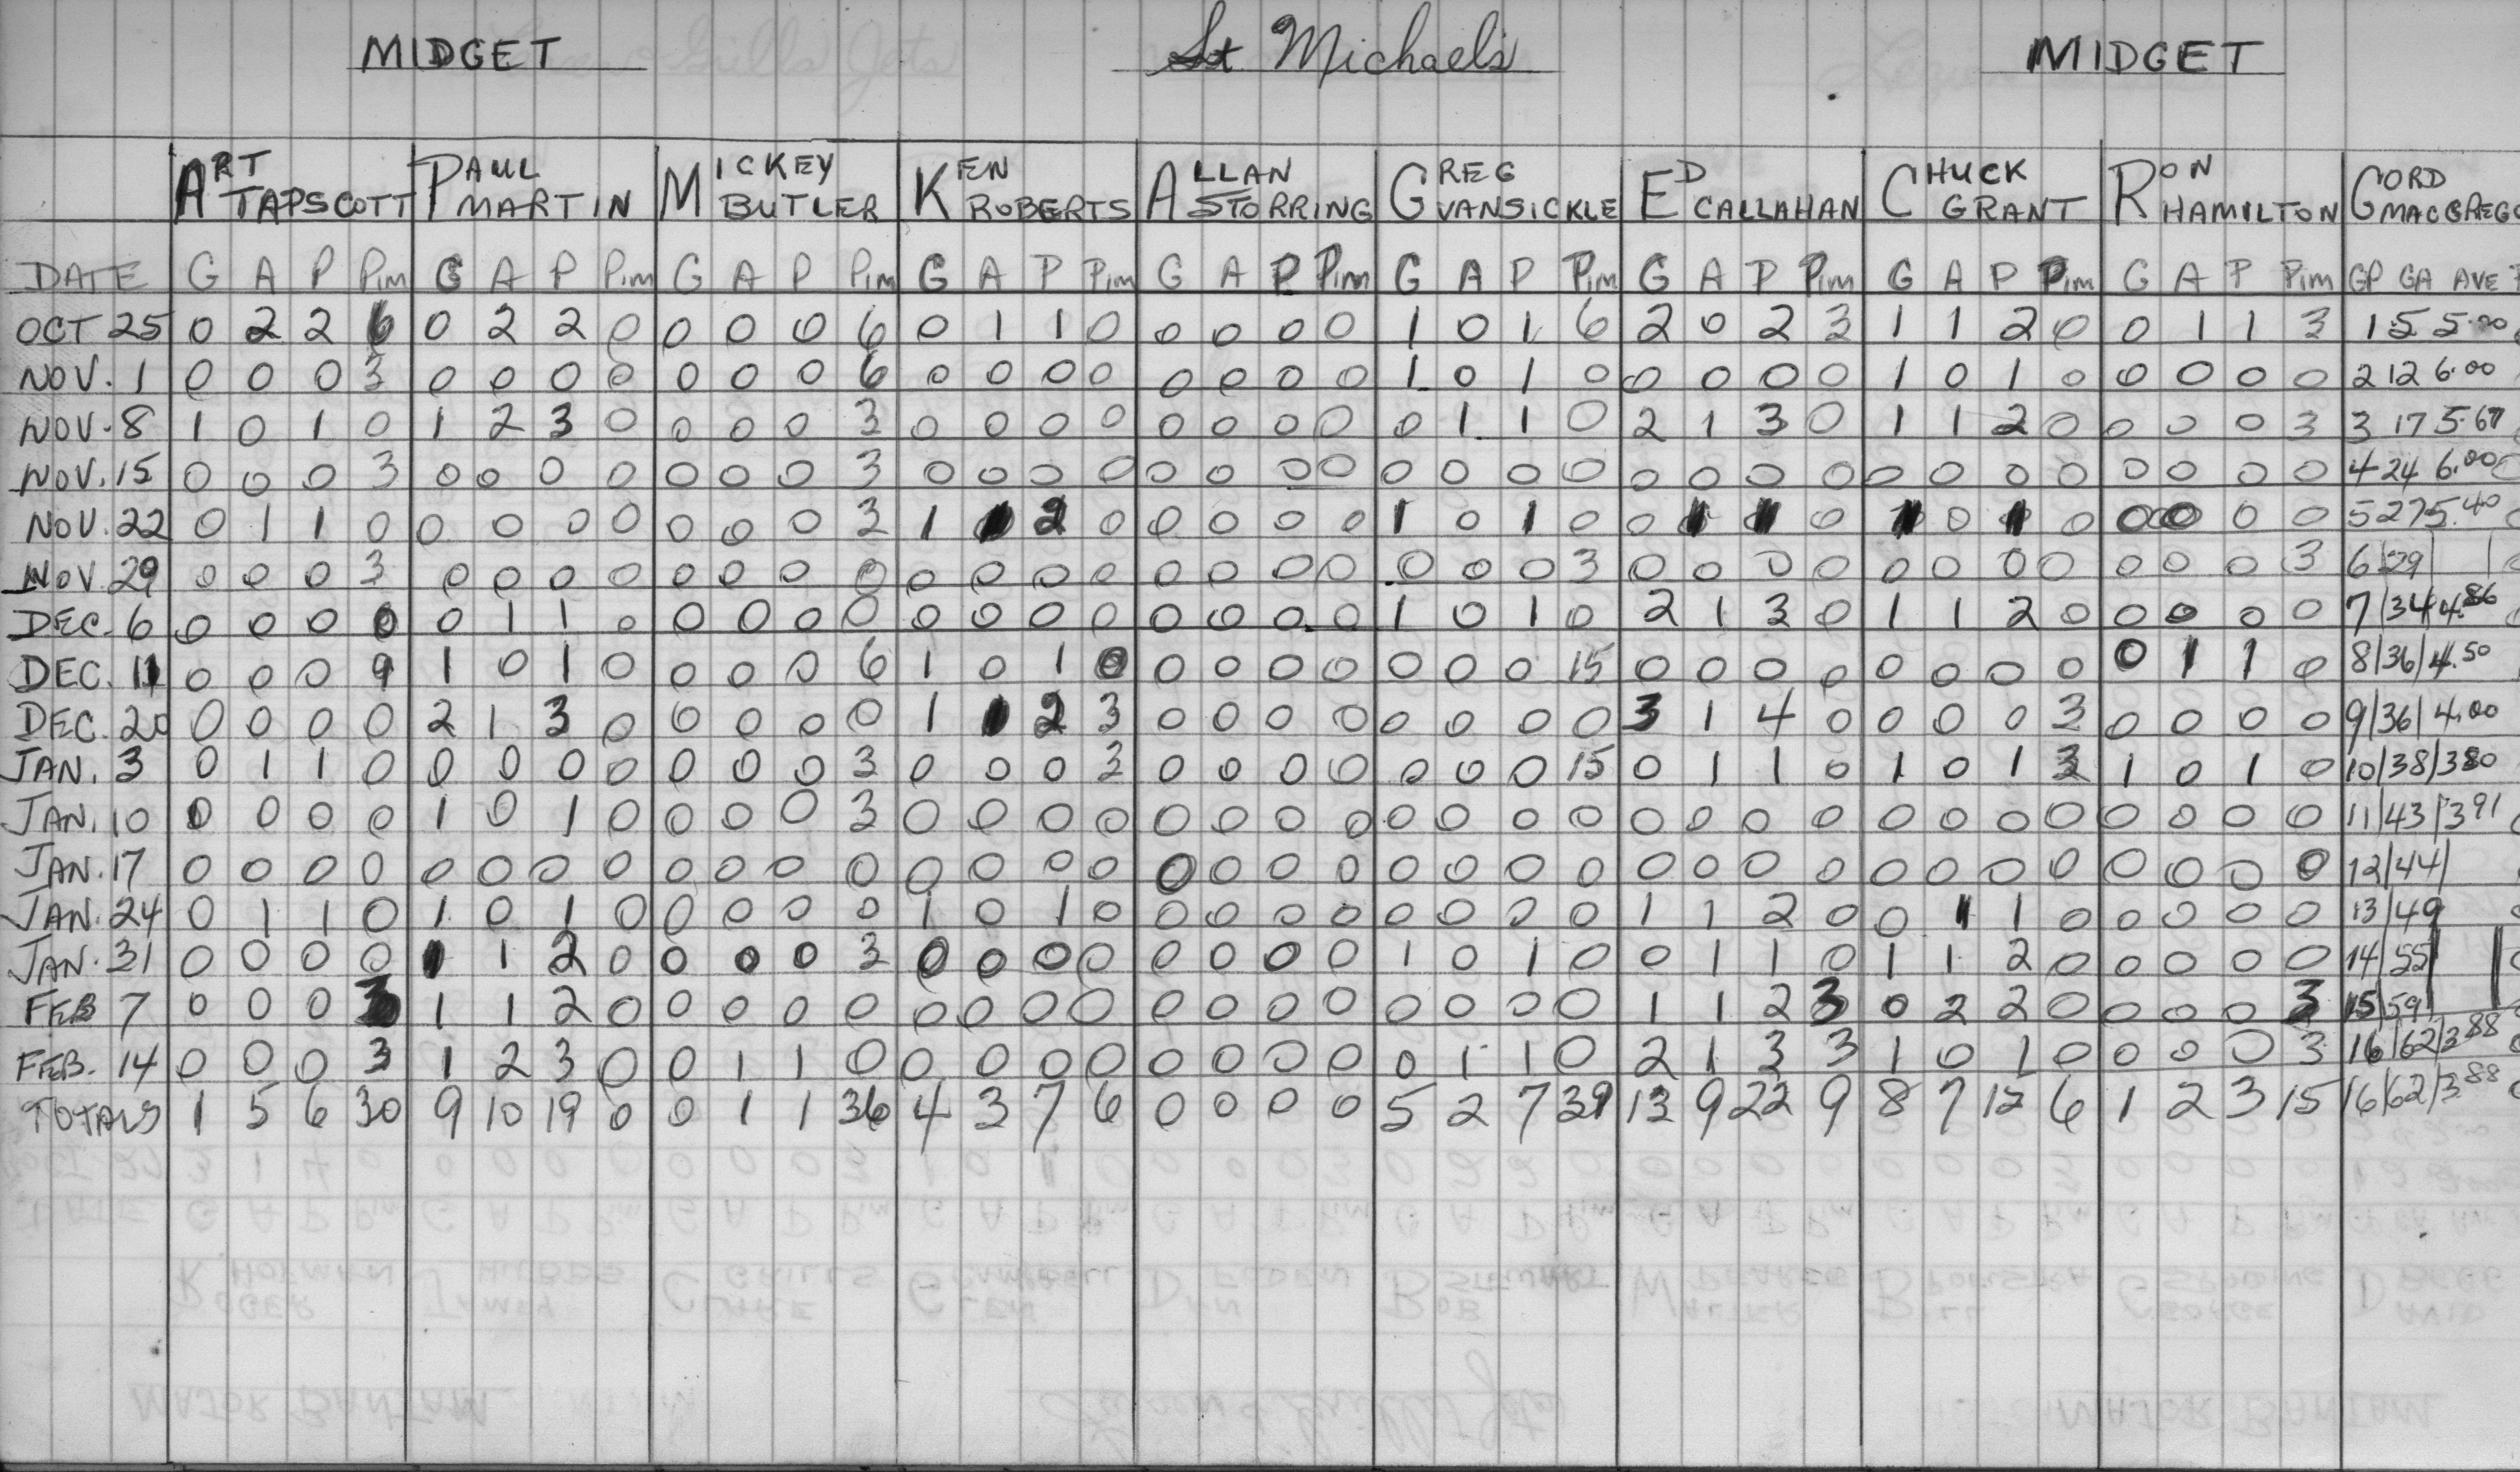 MIDGET St Michael's MIDGET
ART TAPSCOTT PAUL MARTIN MICKEY BUTLER KEN ROBERTS ALLAN STORRING GREG VANSICKLE ED CALLAHAN CHUCK GRANT RON HAMILTON GORD MACGREGO
DATE G A P Pim G A P Pim G A P Pim G A P Pim G A P Pim G A P Pim G A P Pim G A P Pim G A P Pim GP GA AVE
OCT 25 0 2 2 6 0 2 2 0 0 0 0 6 0 1 1 0 0 0 0 0 1 0 1 6 2 0 2 3 1 1 2 0 0 1 1 3 1 5 5.00
NOV. 1 0 0 0 3 0 0 0 0 0 0 0 6 0 0 0 0 0 0 0 0 1 0 1 0 0 0 0 0 1 0 1 0 0 0 0 0 2 12 6.00
NOV. 8 1 0 1 0 1 2 3 0 0 0 0 3 0 0 0 0 0 0 0 0 0 1 1 0 2 1 3 0 1 1 2 0 0 0 0 3 3 17 5.67
NOV. 15 0 0 0 3 0 0 0 0 0 0 0 3 0 0 0 0 0 0 0 0 0 0 0 0 0 0 0 0 0 0 0 0 0 0 0 0 4 24 6.00
NOV. 22 0 1 1 0 0 0 0 0 0 0 0 3 1 1 2 0 0 0 0 0 1 0 1 0 0 1 1 0 1 0 1 0 0 0 0 0 5 27 5.40
NOV. 29 0 0 0 3 0 0 0 0 0 0 0 0 0 0 0 0 0 0 0 0 0 0 0 3 0 0 0 0 0 0 0 0 0 0 0 3 6 29
DEC. 6 0 0 0 0 0 1 1 0 0 0 0 0 0 0 0 0 0 0 0 0 1 0 1 0 2 1 3 0 1 1 2 0 0 0 0 0 7 34 4.86
DEC. 11 0 0 0 9 1 0 1 0 0 0 0 6 1 0 1 0 0 0 0 0 0 0 0 15 0 0 0 0 0 0 0 0 0 1 1 0 8 36 4.50
DEC. 20 0 0 0 0 2 1 3 0 0 0 0 0 1 1 2 3 0 0 0 0 0 0 0 0 3 1 4 0 0 0 0 3 0 0 0 0 9 36 4.00
JAN. 3 0 1 1 0 0 0 0 0 0 0 0 3 0 0 0 3 0 0 0 0 0 0 0 15 0 1 1 0 1 0 1 3 1 0 1 0 10 38 380
JAN. 10 0 0 0 0 1 0 1 0 0 0 0 3 0 0 0 0 0 0 0 0 0 0 0 0 0 0 0 0 0 0 0 0 0 0 0 0 11 43 391
JAN. 17 0 0 0 0 0 0 0 0 0 0 0 0 0 0 0 0 0 0 0 0 0 0 0 0 0 0 0 0 0 0 0 0 0 0 0 0 12 44
JAN. 24 0 1 1 0 1 0 1 0 0 0 0 0 1 0 1 0 0 0 0 0 0 0 0 0 1 1 2 0 0 1 1 0 0 0 0 0 13 49
JAN. 31 0 0 0 0 1 1 2 0 0 0 0 3 0 0 0 0 0 0 0 0 1 0 1 0 0 1 1 0 1 1 2 0 0 0 0 0 14 55
FEB 7 0 0 0 3 1 1 2 0 0 0 0 0 0 0 0 0 0 0 0 0 0 0 0 0 1 1 2 3 0 2 2 0 0 0 0 3 15 59
FEB. 14 0 0 0 3 1 2 3 0 0 1 1 0 0 0 0 0 0 0 0 0 0 1 1 0 2 1 3 3 1 0 1 0 0 0 0 3 16 62 388
TOTALS 1 5 6 30 9 10 19 0 0 1 1 36 4 3 7 6 0 0 0 0 5 2 7 39 13 9 22 9 8 7 12 6 1 2 3 15 16 62 388